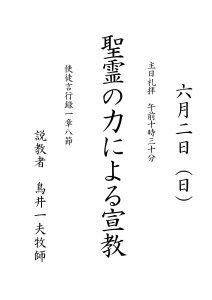 六月二日（日）
主日礼拝　午前十時三十分
聖霊の力による宣教
使徒言行録一章八節
説教者　鳥井一夫牧師